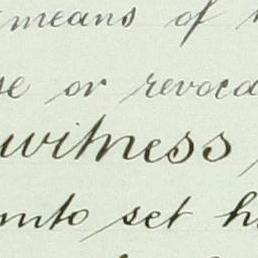 means of
se or revoca
witness
unto set h